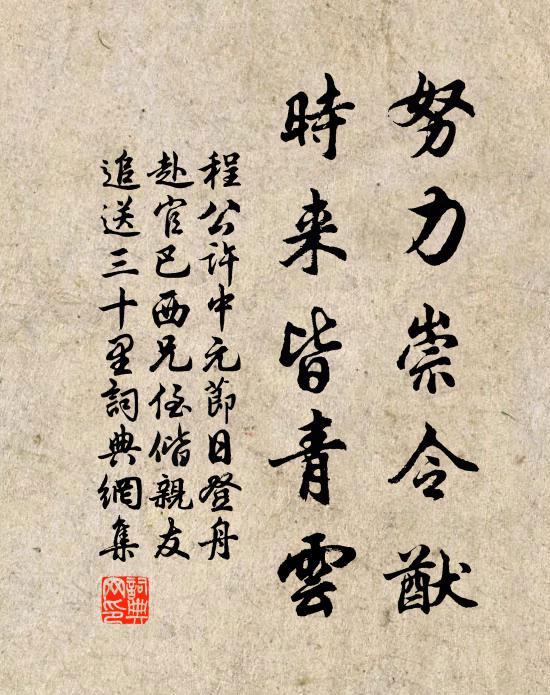 努力崇令猷
時来皆青雲
程公許中元節日登舟
赴官巴西兄侄偕親友
追送三十里詞典網集
詞典网印